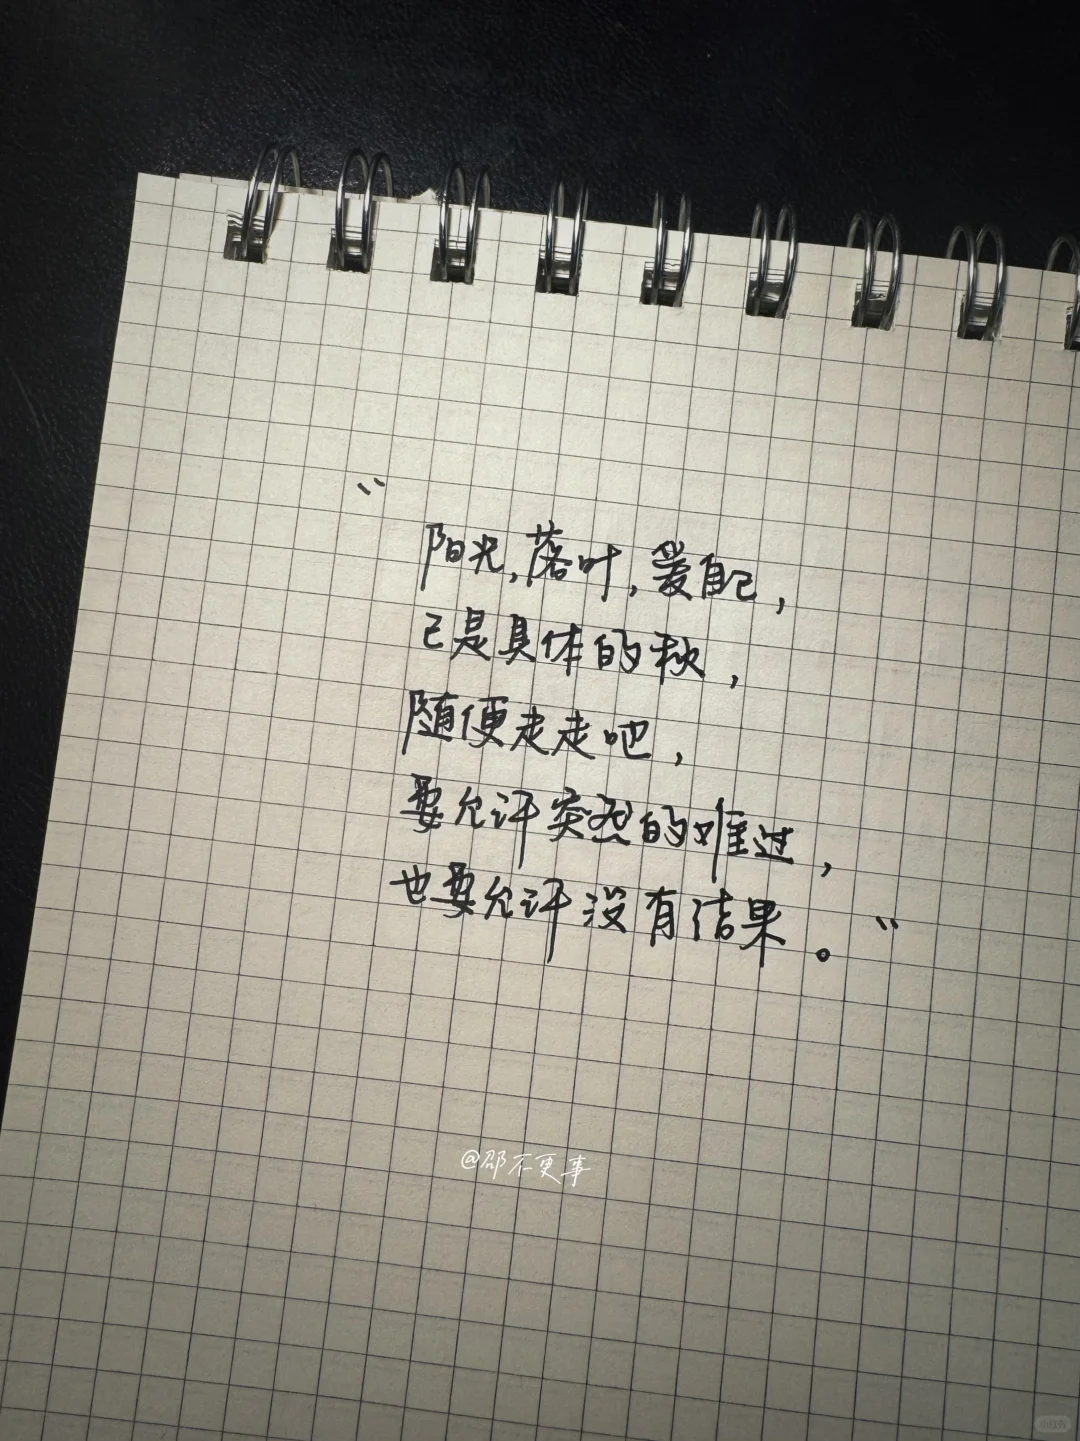 “
阳光,落叶,爱自己,
已是具体的秋,
随便走走吧,
要允许突然的难过,
也要允许没有结果。”
@邵不更事
小红书